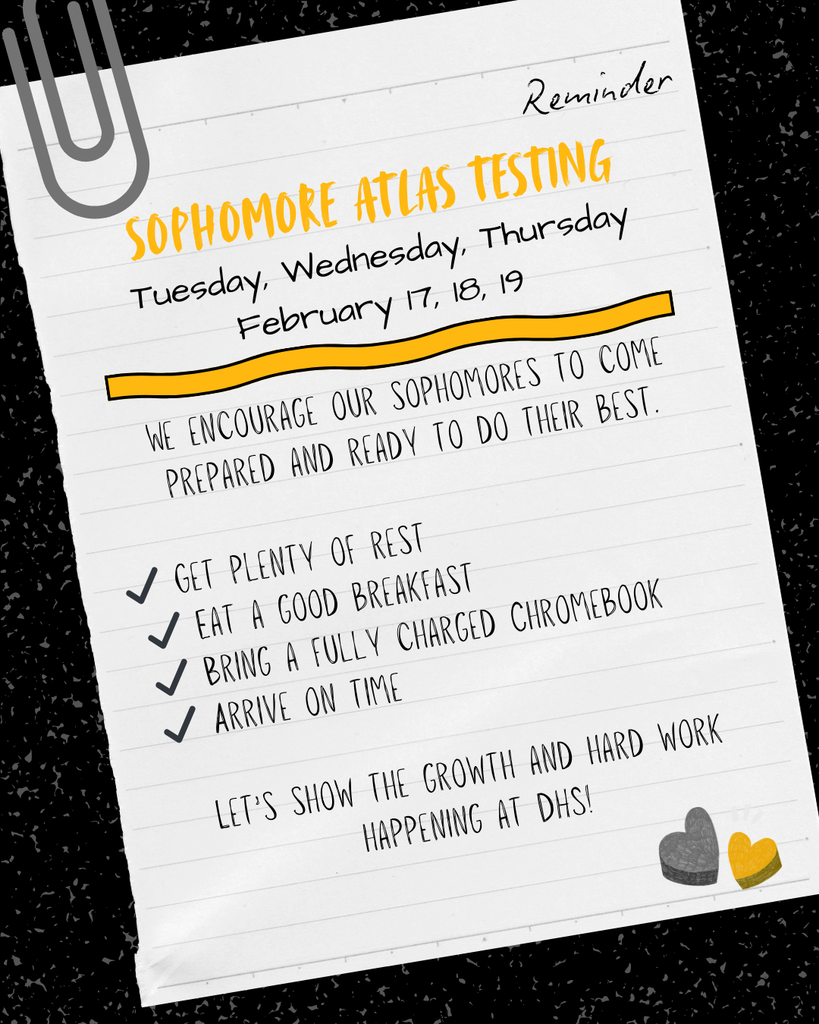 Reminder
SOPHOMORE ATLAS TESTING
Tuesday, Wednesday, Thursday
February 17, 18, 19
WE ENCOURAGE OUR SOPHOMORES TO COME
PREPARED AND READY TO DO THEIR BEST.
GET PLENTY OF REST
EAT A GOOD BREAKFAST
BRING A FULLY CHARGED CHROMEBOOK
ARRIVE ON TIME
LET'S SHOW THE GROWTH AND HARD WORK
HAPPENING AT DHS!